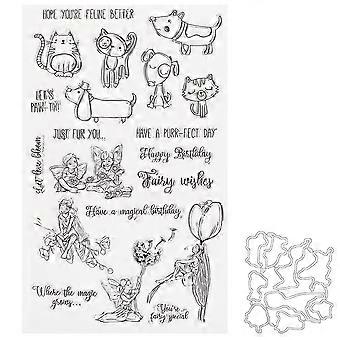 HOPE YOU'RE FELINE BETTER
LET'S
PAW-TY!
JUST FUR YOU...
HAVE A PURR-FECT DAY
Let love bloom
Happy Birthday
Fairy wishes
Have a magical birthday
Where the magic
grows...
You're
fairy special